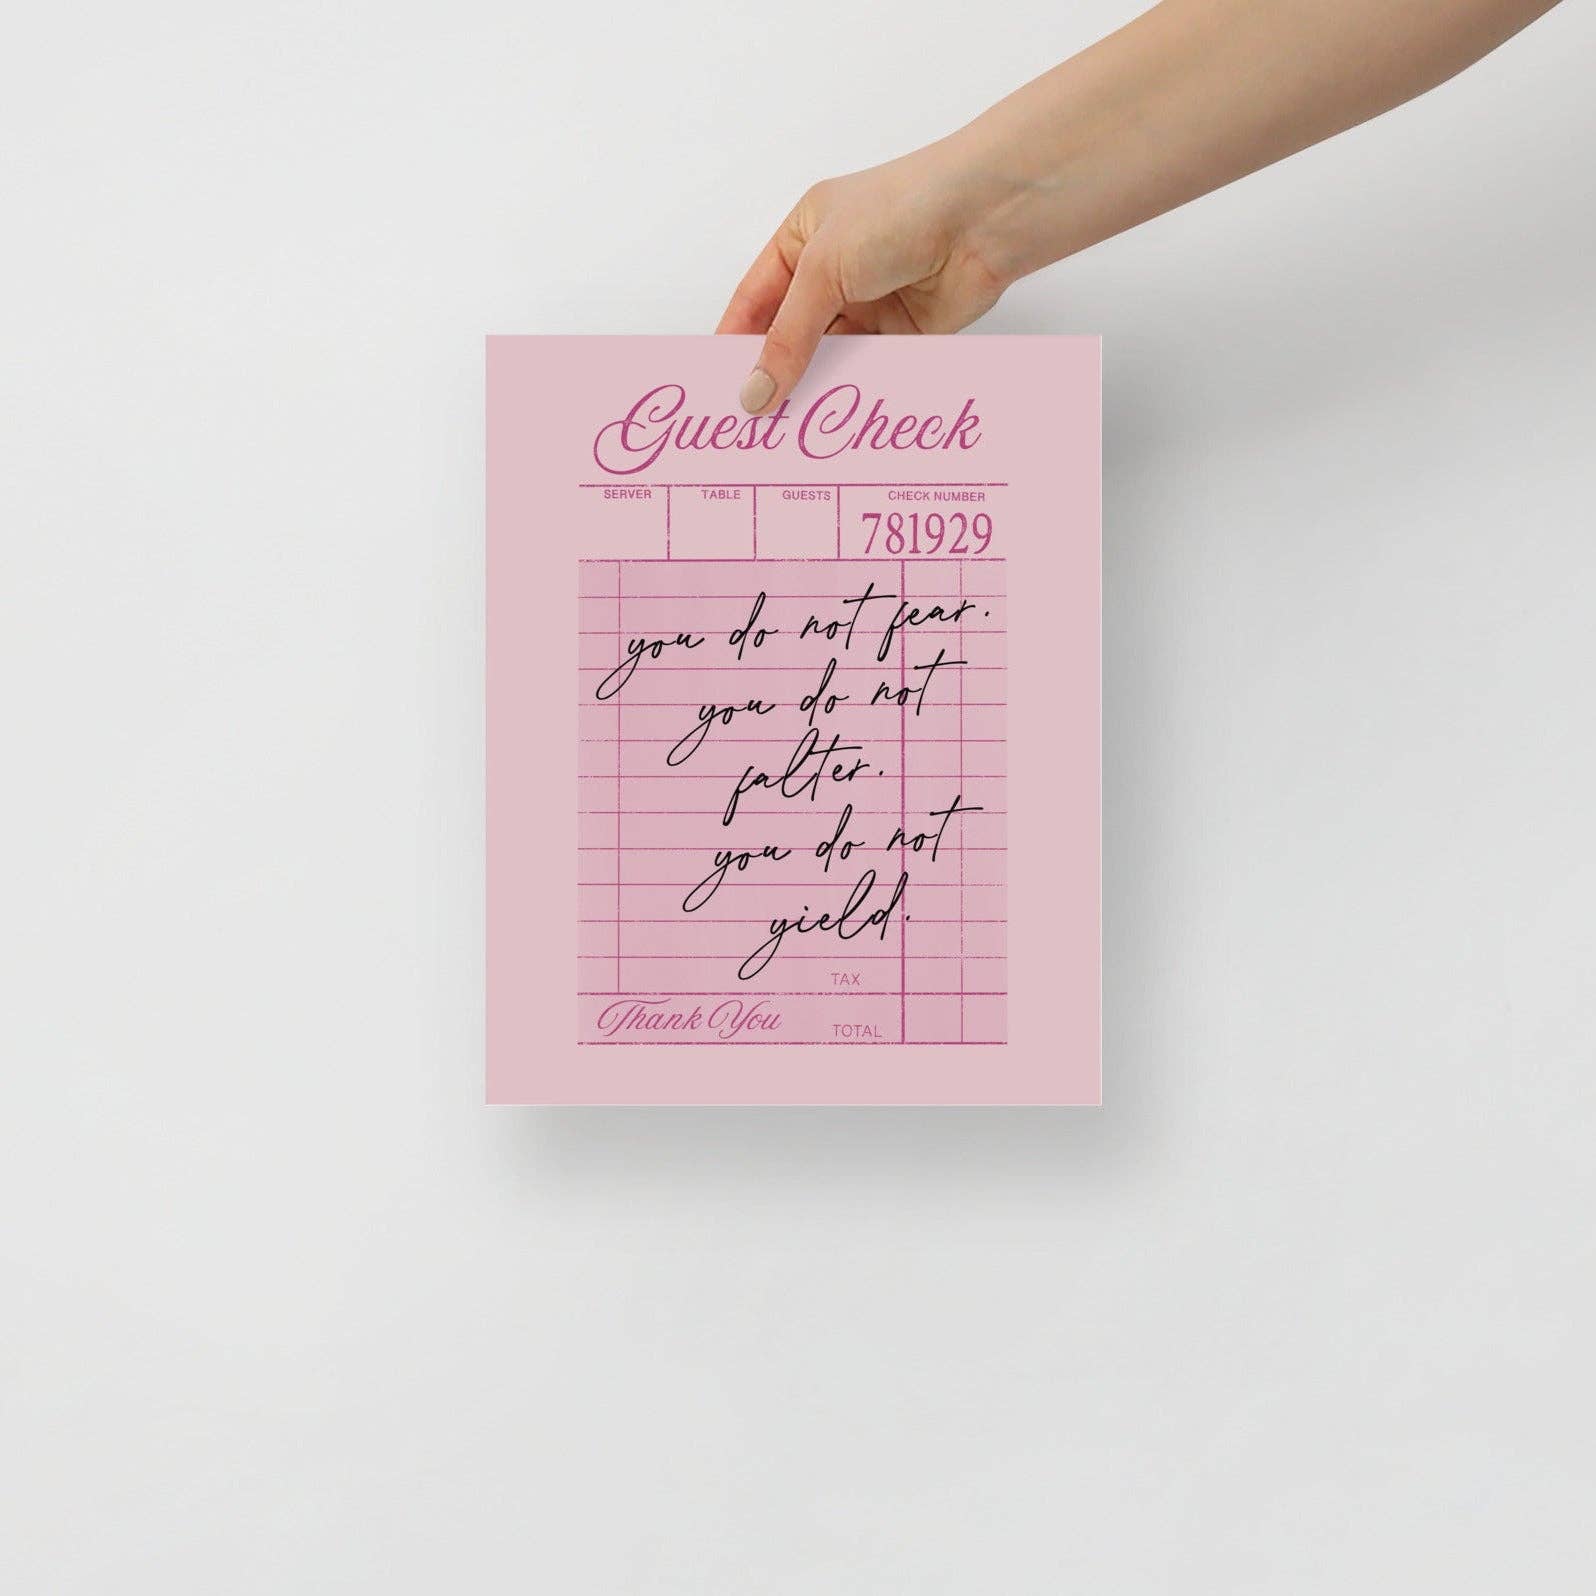 Guest Check
SERVER TABLE GUESTS CHECK NUMBER
781929
you do not fear.
you do not
falter.
you do not
yield.
TAX
Thank You TOTAL